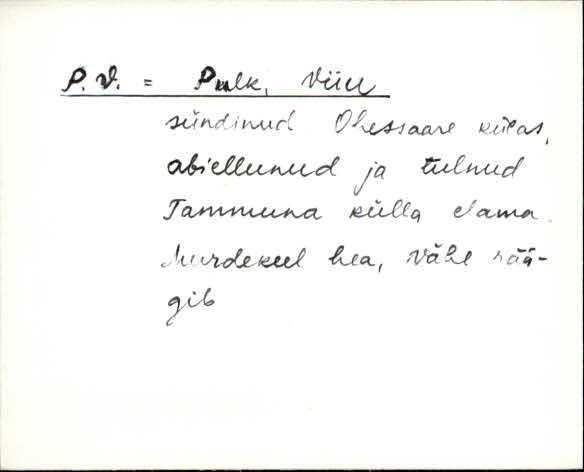 P. V. = Pulk, Viiu
sündinud Ohessaare külas,
abiellunud ja tulnud
Tammuna külla elama.
Murdekeel hea, vähe rää-
gib